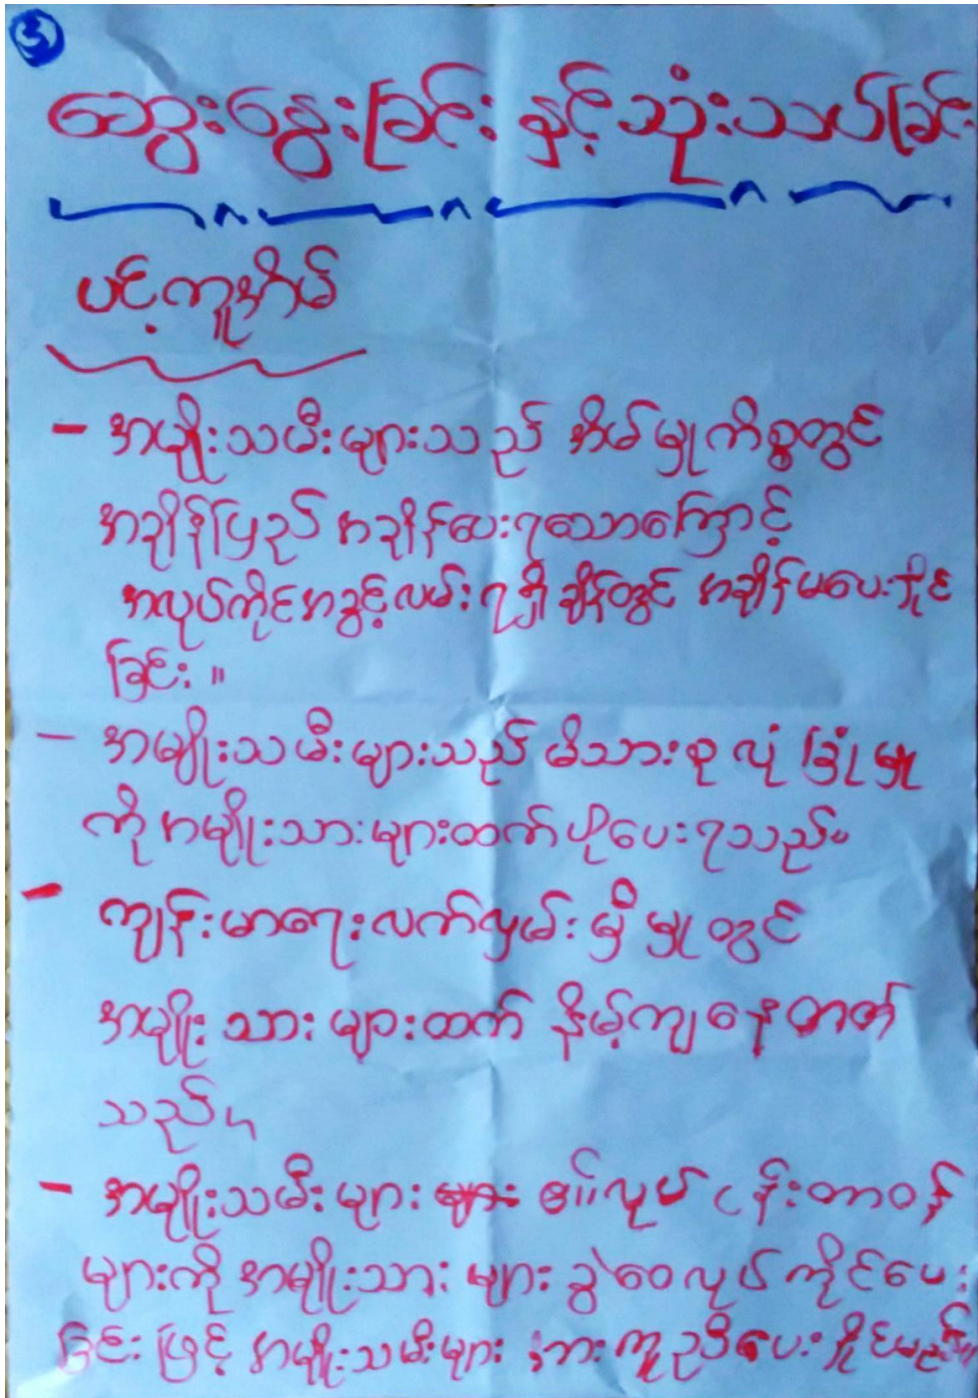 ၃
ဆွေးနွေးခြင်း နှင့် သုံးသပ်ခြင်း
ပင့်ကူအိမ်
- အမျိုးသမီးများသည် အိမ်မှုကိစ္စတွင်
အချိန်ပြည့် အချိန်ပေးရသောကြောင့်
အလုပ်ကိုင်အခွင့်လမ်းရရှိချိန်တွင် အချိန်မပေးနိုင်
ခြင်း။
- အမျိုးသမီးများသည် မိသားစု လုံခြုံမှု
ကို အမျိုးသားများထက် ပိုပေးရသည်။
- ကျန်းမာရေးလက်လှမ်းမှီမှုတွင်
အမျိုးသားများထက် နိမ့်ကျနေတတ်
သည်။
- အမျိုးသမီးများ ၏ လုပ်ငန်းတာဝန်
များကို အမျိုးသားများ ခွဲဝေလုပ်ကိုင်ပေး
ခြင်းဖြင့် အမျိုးသမီးများ အား ကူညီပေးနိုင်မည်